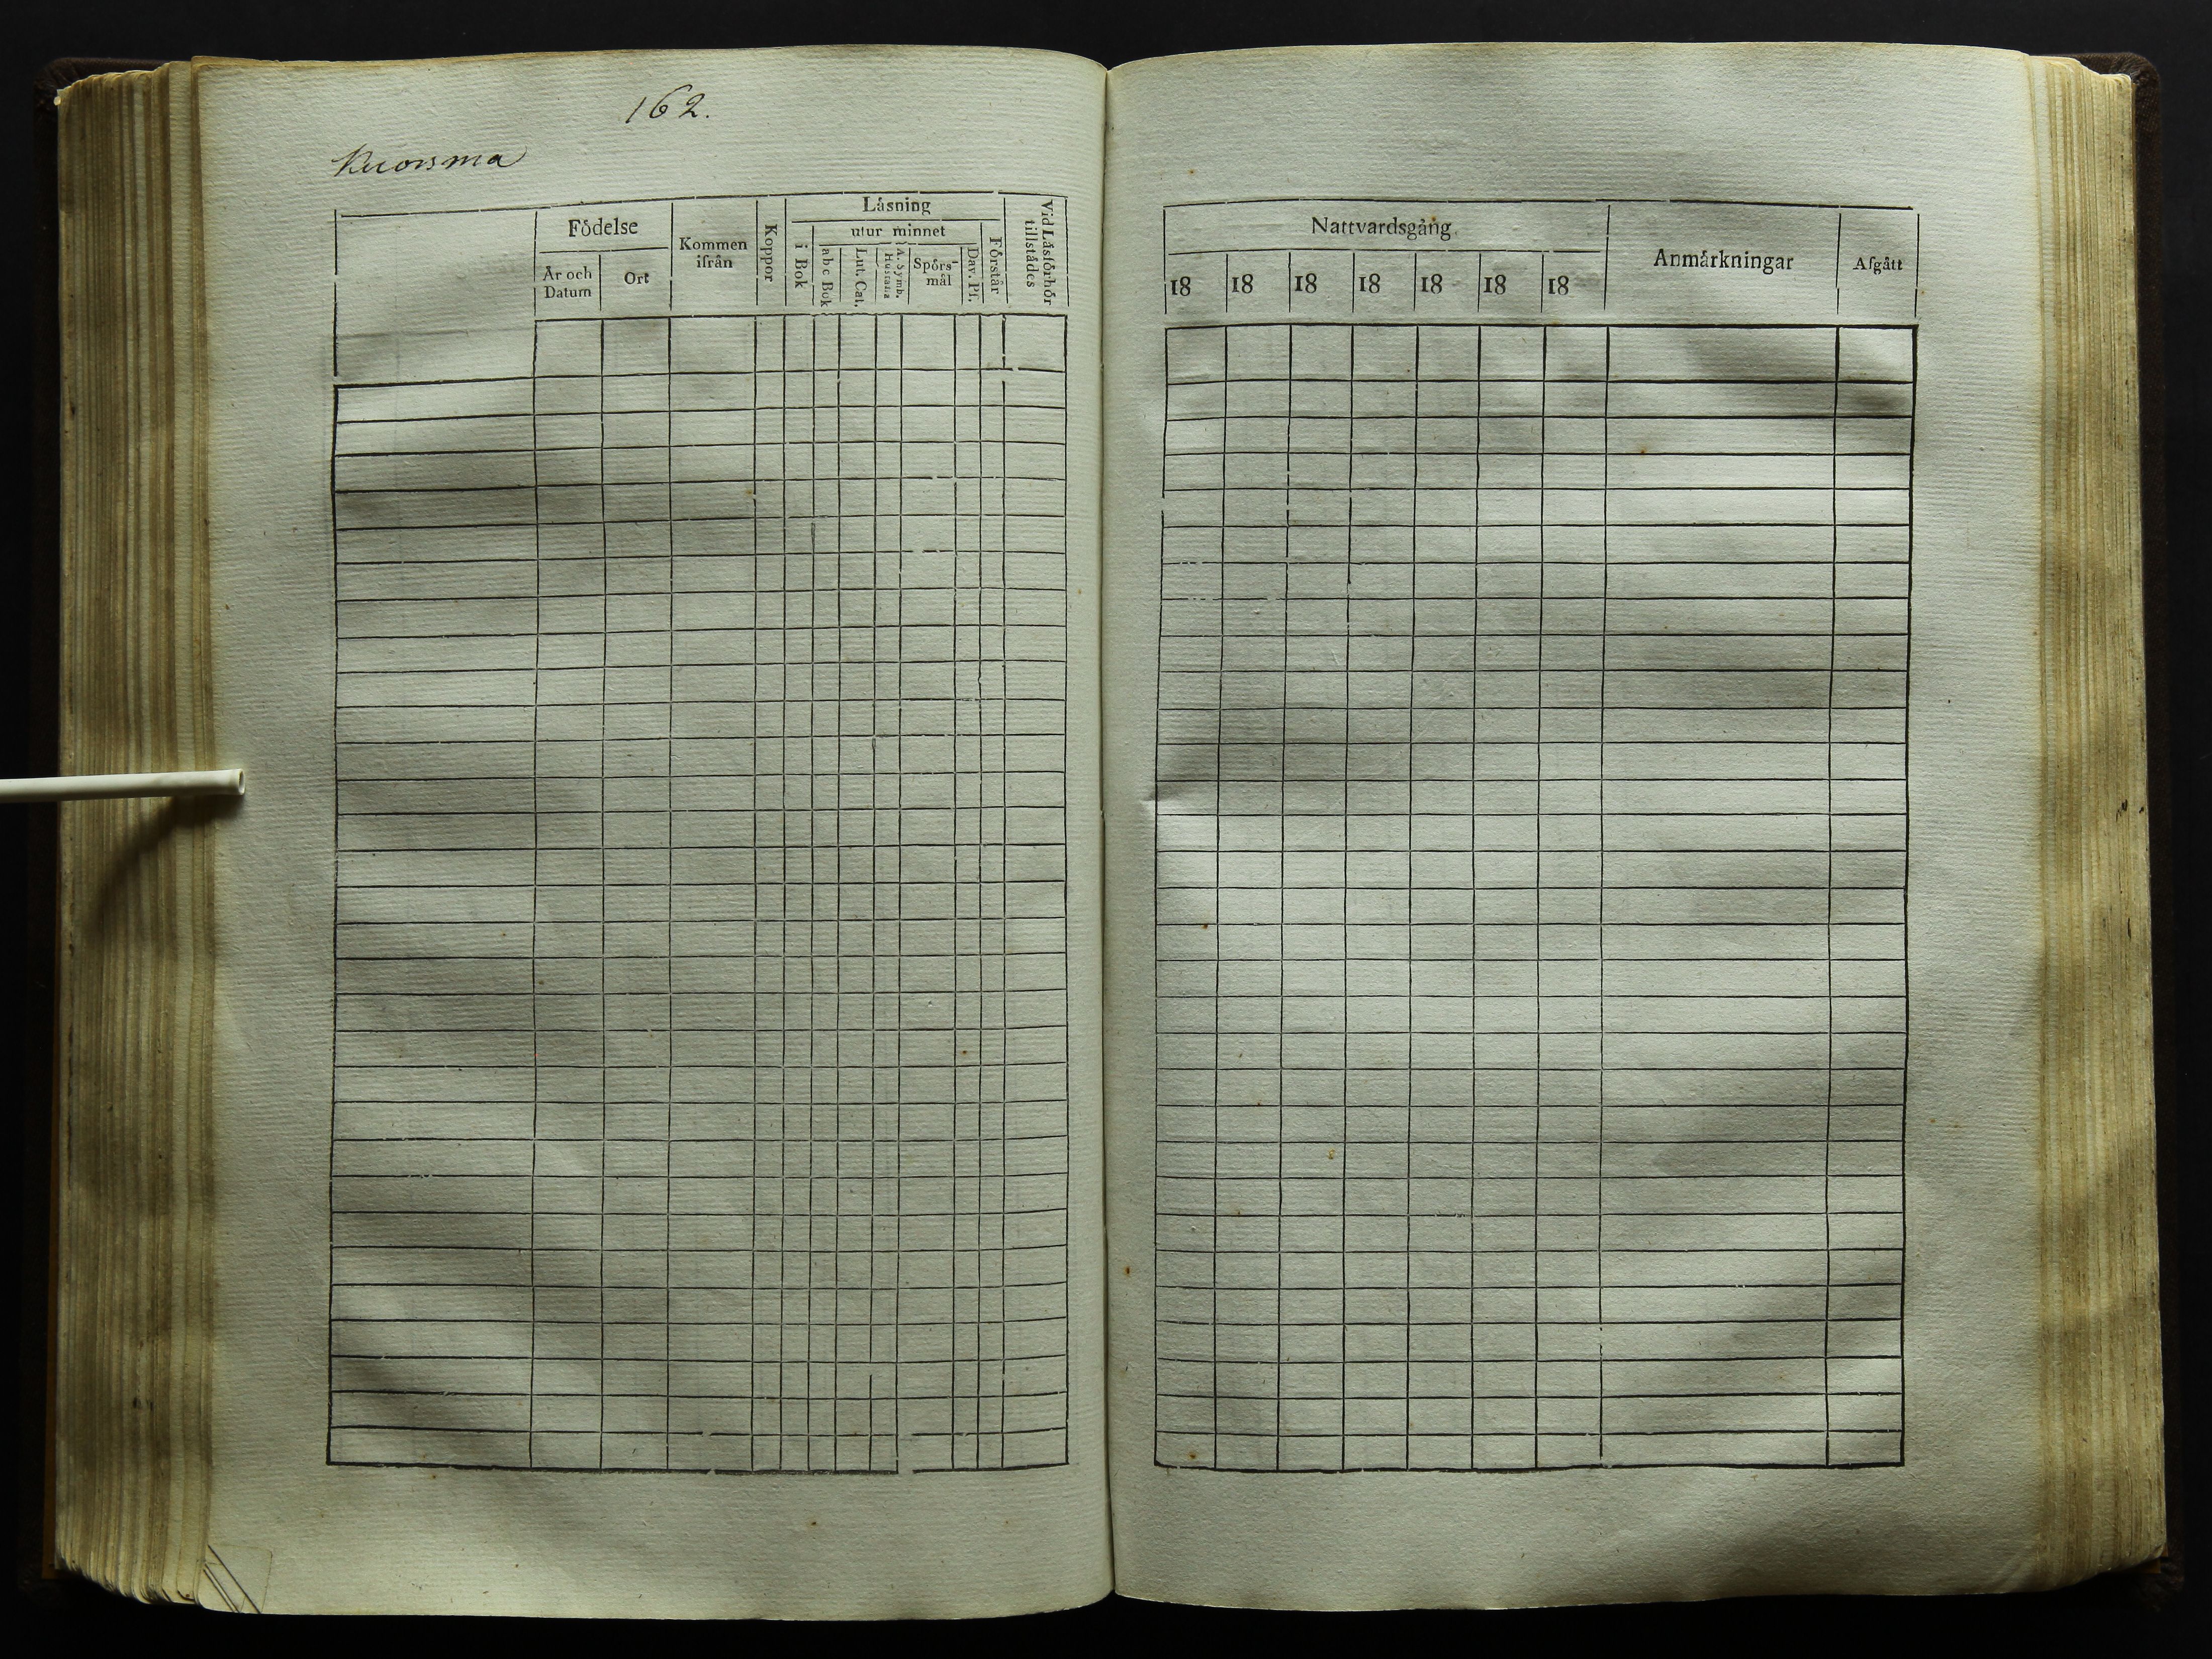 162.
Kuorsma
Födelse
År och Datum
Ort
Kommen ifrån
Koppor
Läsning
utur minnet
i Bok
abc Bok
Lut. Cat.
A. Symb.
Spörs-
mål
Dav. Ps.
Förstår
Vid Läsförhör
tillstädes
Nattvardsgång
18 18 18 18 18 18 18
Anmärkningar
Afgått